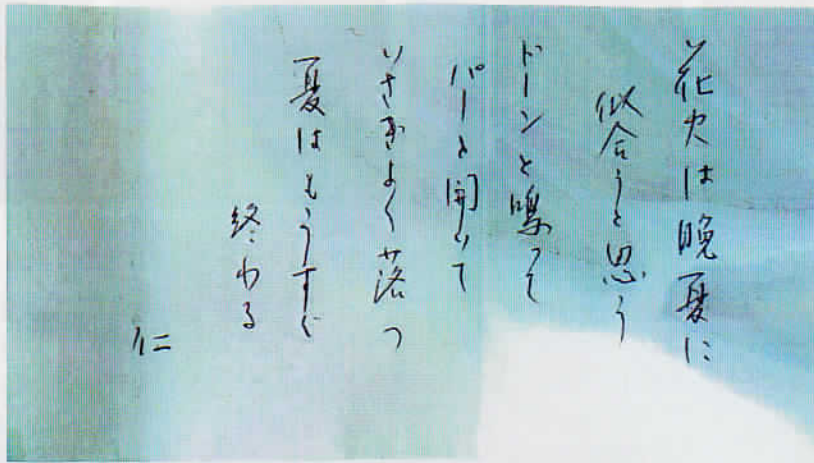 花火は晩夏に
似合うと思う
ドーンと鳴って
パーと開いて
いさぎよく落つ
夏はもうすぐ
終わる
仁